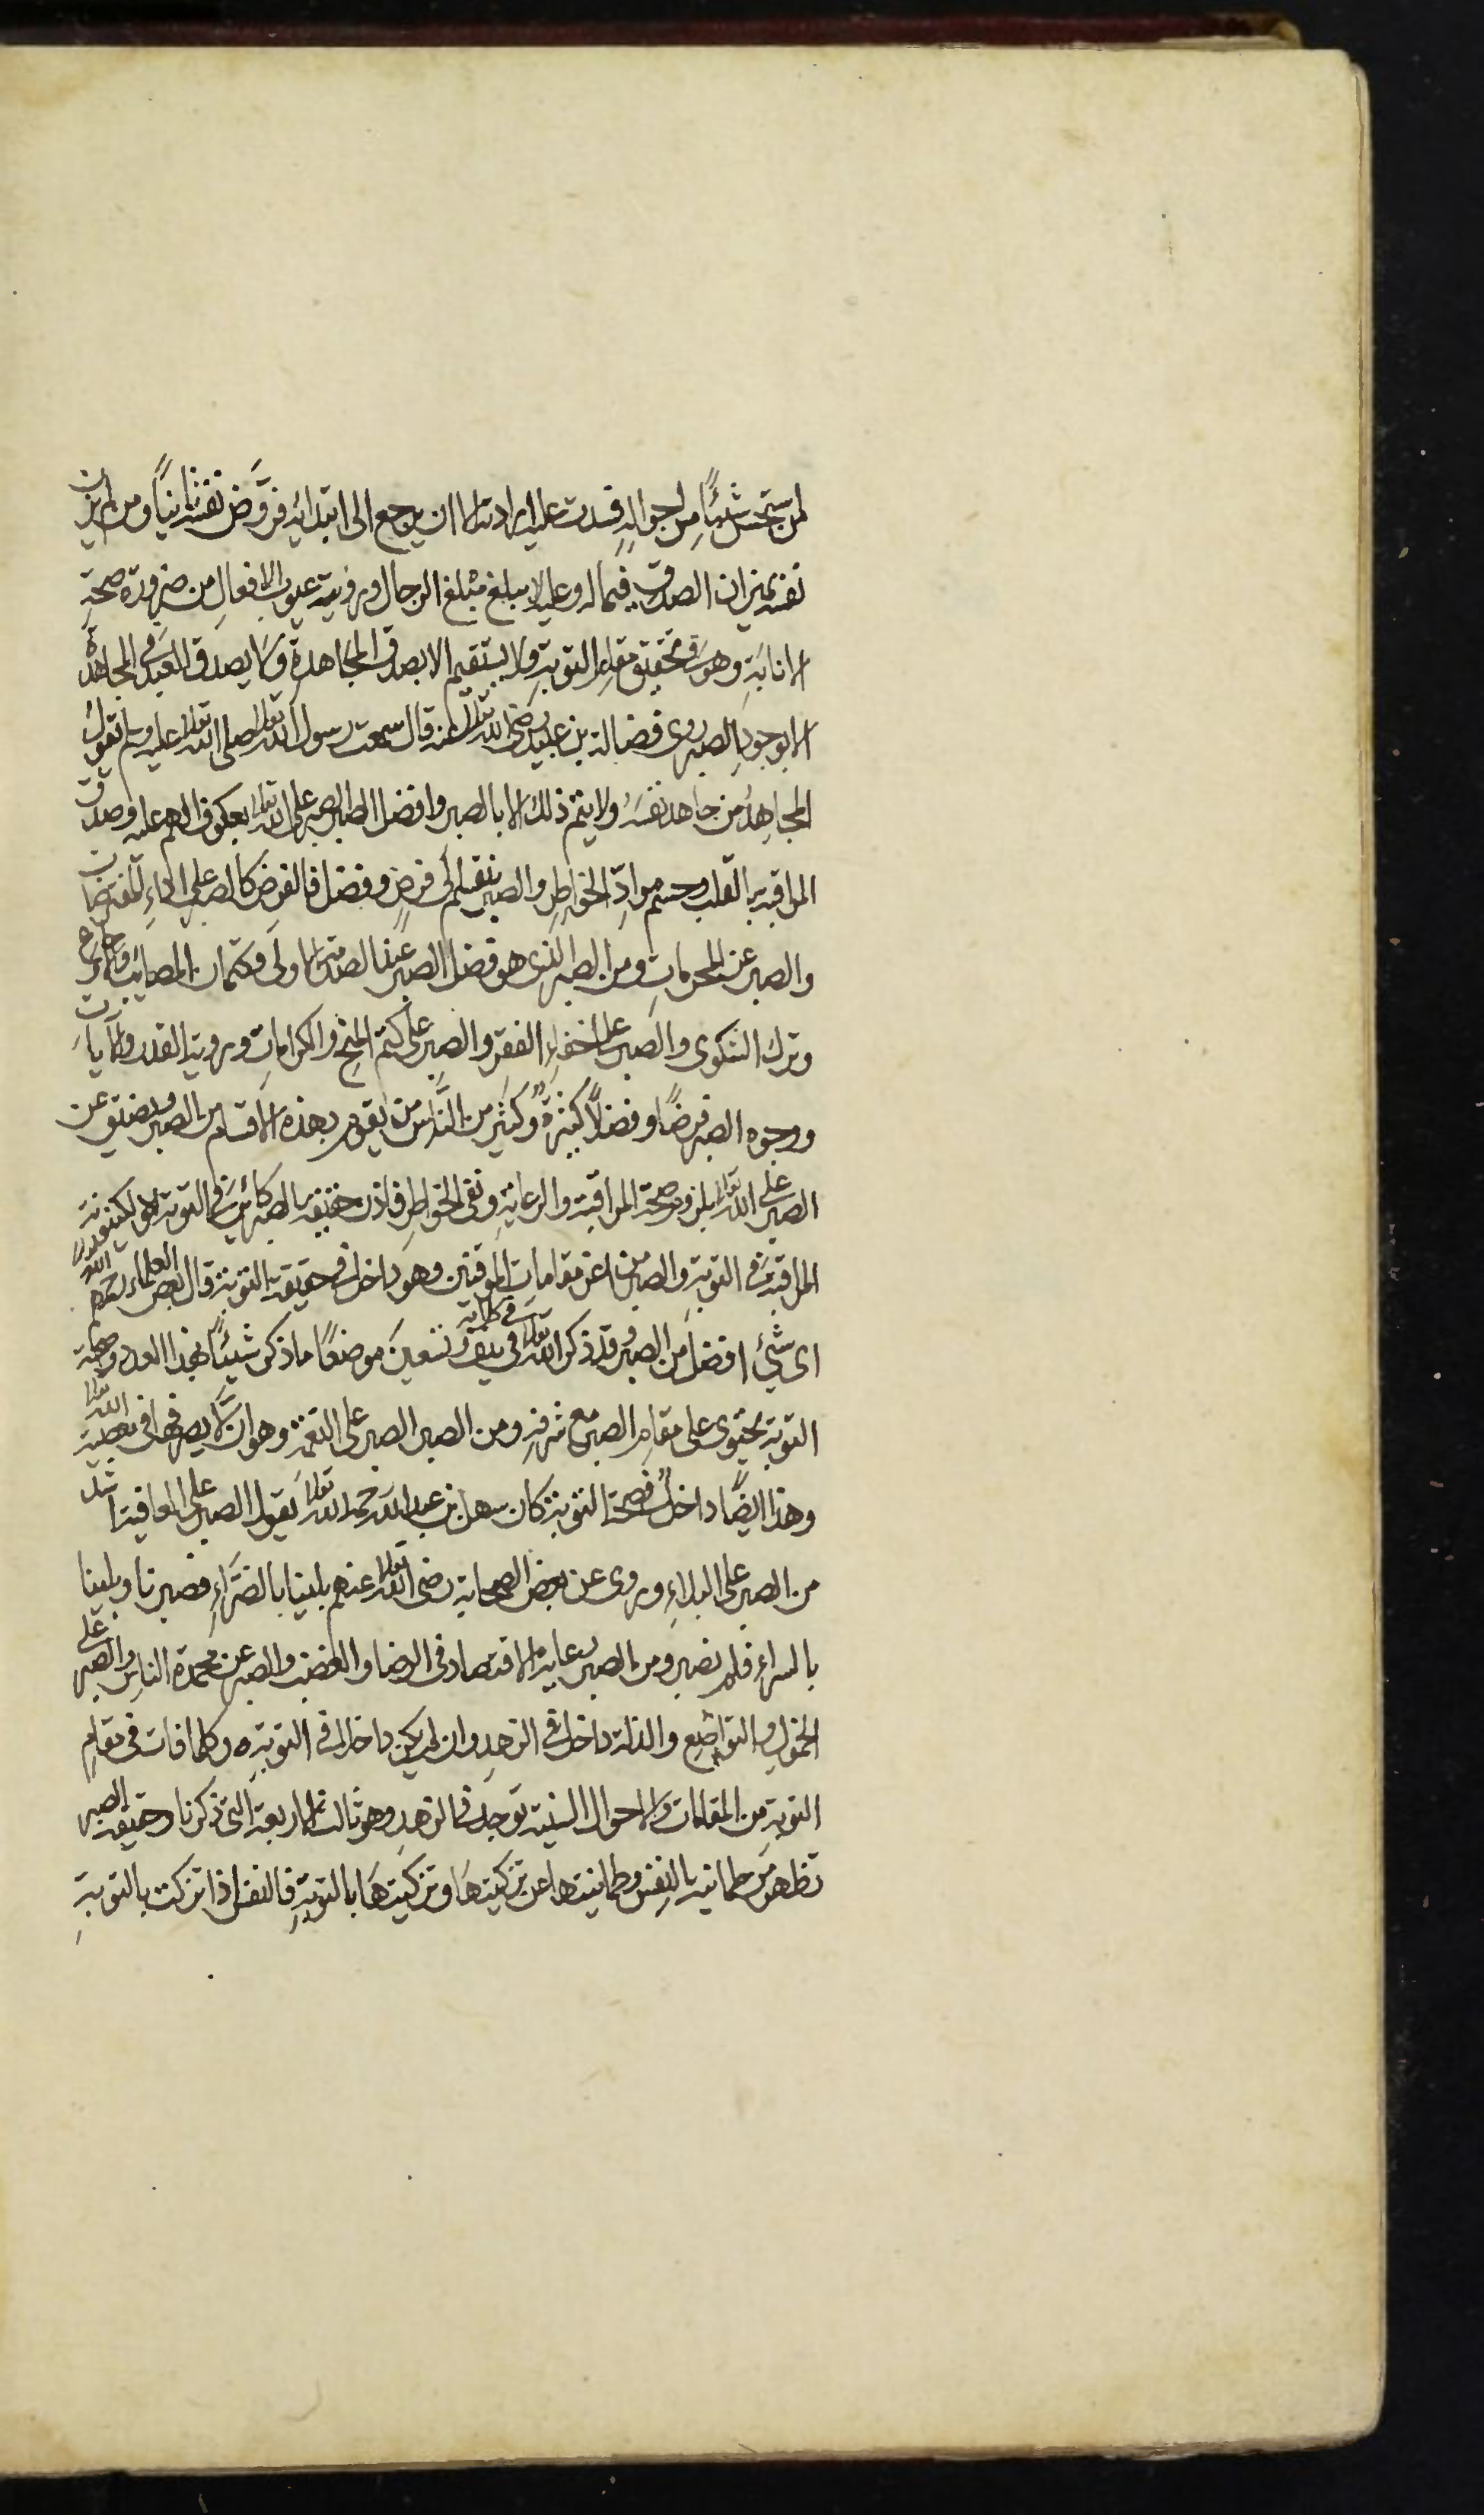 لمن استحسن شيئًا من احواله فسدت عليه ارادته الا ان يرجع الى ابتدائه فروّض نفسه ثانيًا ومن لم يزن
نفسه بميزان الصدق فيما له وعليه لا يبلغ مبلغ الرجال ورؤية عيوب الافعال من ضرورة صحة
الانابة وهو في تحقيق مقام التوبة ولا يستقيم الا بصدق المجاهدة ولا يصدق العبد في المجاهدة
الا بوجود الصبر وروى فضالة بن عبيد رضي الله تعالى عنه قال سمعت رسول الله تعالى صلى الله تعالى عليه وسلم يقول
المجاهد من جاهد نفسه ولا يتم ذلك الا بالصبر وافضل الصبر الصبر على الله تعالى بعكوف الهم عليه وصدق
المراقبة بالقلب وحسم مواد الخواطر والصبر ينقسم الى فرض وفضل فالفرض كالصبر على اداء المفترضات
والصبر عن المحرمات ومن الصبر الذي هو فضل الصبر عند الصدمة الاولى وكتمان المصائب والاوجاع
وترك الشكوى والصبر على اخفاء الفقر والصبر على كتم المنح والكرامات ورؤية القدر والآيات
ووجوه الصبر فرضًا وفضلًا كثيرة وكثير من الناس من يقوم بهذه الاقسام من الصبر ويضيق عن
الصبر على الله تعالى بلزوم صحة المراقبة والرعاية ونفى الخواطر فاذن حقيقة الصبر كائنة في التوبة ككينونة
المراقبة في التوبة والصبر من اعز مقامات الموقنين وهو داخل في حقيقة التوبة قال بعض العلماء رحمهم الله
اى شيء افضل من الصبر وقد ذكره الله تعالى في كتابه في نيف وتسعين موضعًا ما ذكر شيئًا بهذا العدد وصحة
التوبة تحتوى على مقام الصبر مع شرفه ومن الصبر الصبر على النعمة وهو ان لا يصرفها في معصية الله تعالى
وهذا ايضًا داخل في صحة التوبة كان سهل بن عبد الله رحمه الله تعالى يقول الصبر على العافية اشد
من الصبر على البلاء وروى عن بعض الصحابة رضى الله تعالى عنهم بلينا بالضراء فصبرنا وبلينا
بالسراء فلم نصبر ومن الصبر رعاية الاقتصاد في الرضا والغضب والصبر عن محمدة الناس والصبر على
الخمول والتواضع والذلة داخل في الزهد وان لم يكن داخلا في التوبة وكلما فات في مقام
التوبة من المقامات والاحوال السنية توجد في الزهد وهو ثالث الاربعة التي ذكرنا وحقيقة الصبر
تظهر من طمانينة النفس وطمانينتها عن تزكيتها وتزكيتها بالتوبة فالنفس اذا تزكت بالتوبة